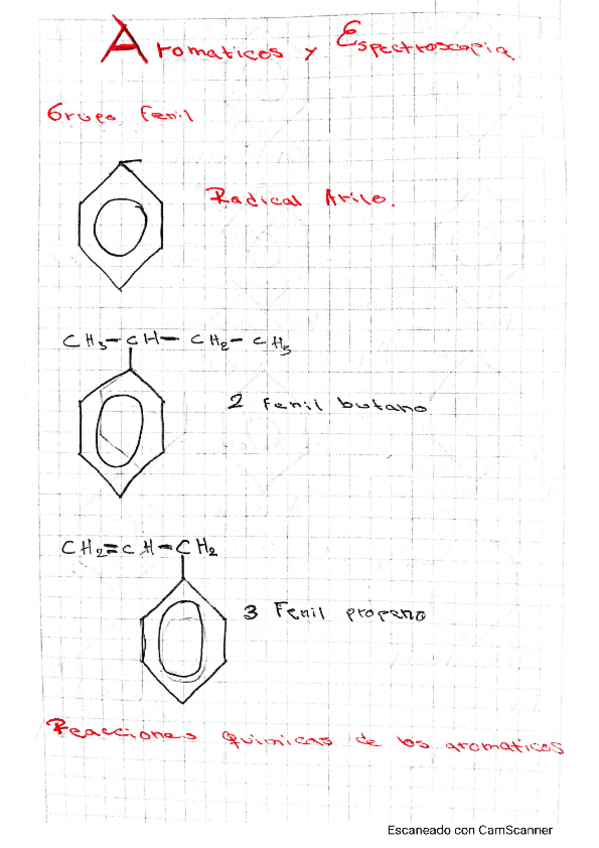 Aromaticos y Espectroscopia
Grupo Fenil
Radical Arilo.
CH3-CH-CH2-CH3
2 Fenil butano
CH2=CH-CH2
3 Fenil propeno
Reacciones quimicas de los aromaticos
Escaneado con CamScanner